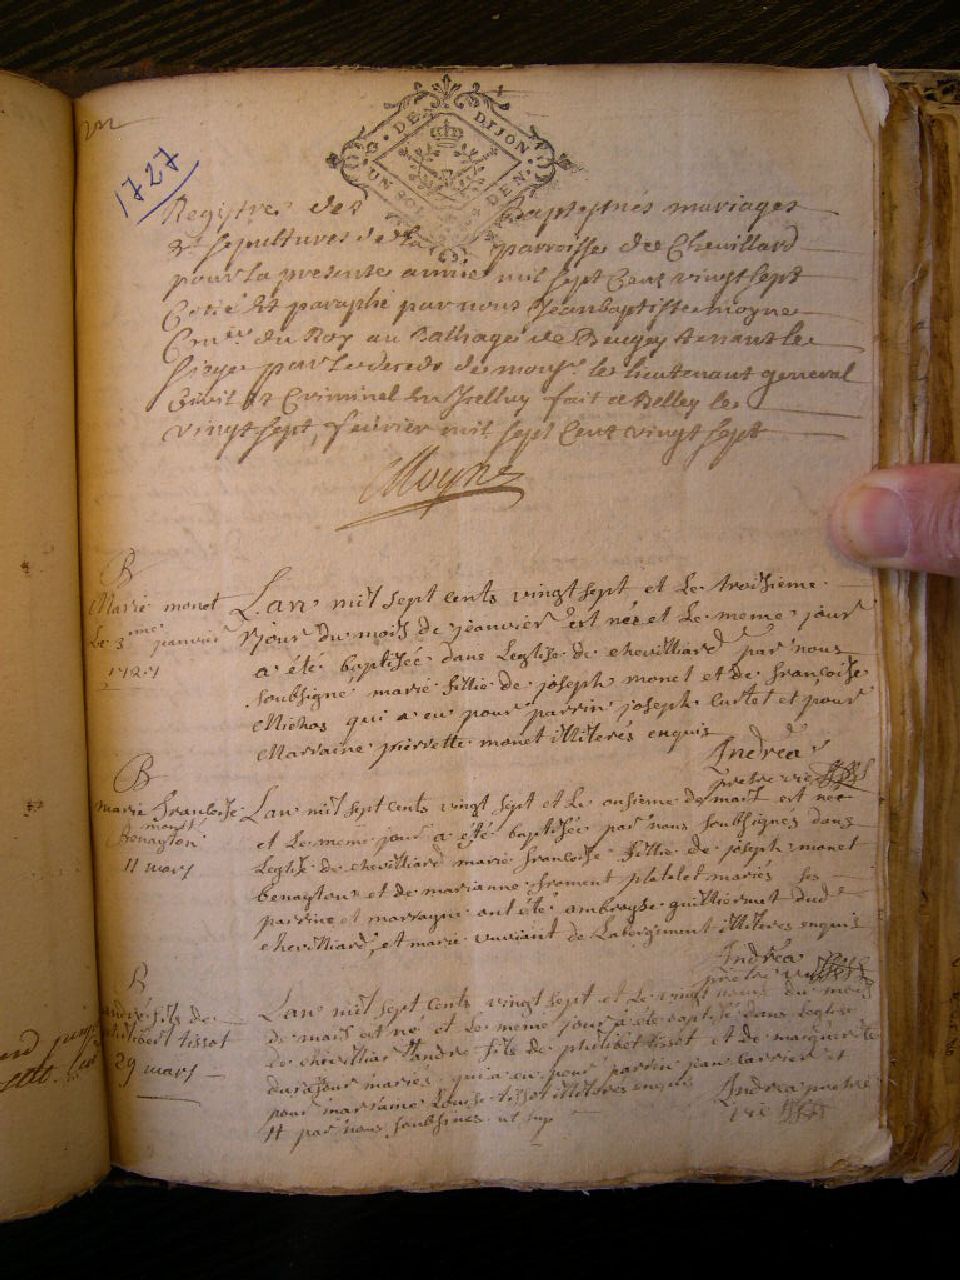 1727
DE DIJON
UN SOL
DEN
Registre des baptestres mariages
& sepultures de la parroisse de Chevillard
pour la presente année mil sept Cens vingt sept
Cotté Et paraphé par nous Jean baptiste moyne
Con.er du Roy au Balliage de Beugey tenant le
siege par de mons.r le lieutenant general
Civil Et Criminel fait a Belley le
vingt sept, fevrier mil sept Cent vingt sept
Moyne
B
Marie monet
Le 3.me janvier
1727
Lan mil sept cents vingt sept et Le troisieme
jour du mois de jeanvier est née et Le meme jour
a été baptisée dans Leglise de chevilliard par nous
soubsigné marie fillie de joseph monet et de francoise
Michos qui a eu pour parrin joseph Curtet et pour
Marraine pierrette monet illiterés enquis
Andréa
pretre vic
B
marie francoise
monet
benayton
11 mars
Lan mil sept cents vingt sept et Le onsieme de mars est née
et Le meme jour a été baptisée par nous soubsignés dans
Leglise de chevilliard marie francoise fillie de joseph monet
benayton et de marianne froment platelet mariés ses
parrine et marragne ont été ambroyse guilliermet dud
chevilliard, et marie vuviant de Labergement illiteres enquis
Andréa
pretre vic
B
andré fils de
philibert tissot
29 mars
Lan mil sept cents vingt sept et Le vingt neuf du mois
de mars est né et Le meme jour a été baptisé dans Leglise
de chevilliar # andre fils de philibet tissot et de marguerite
durafour mariés qui a eu pour parrin jean carrier et
pour marraine Louise tissot illiteres enquis
Andréa pretre
vic
# par nous soubsines ut sup